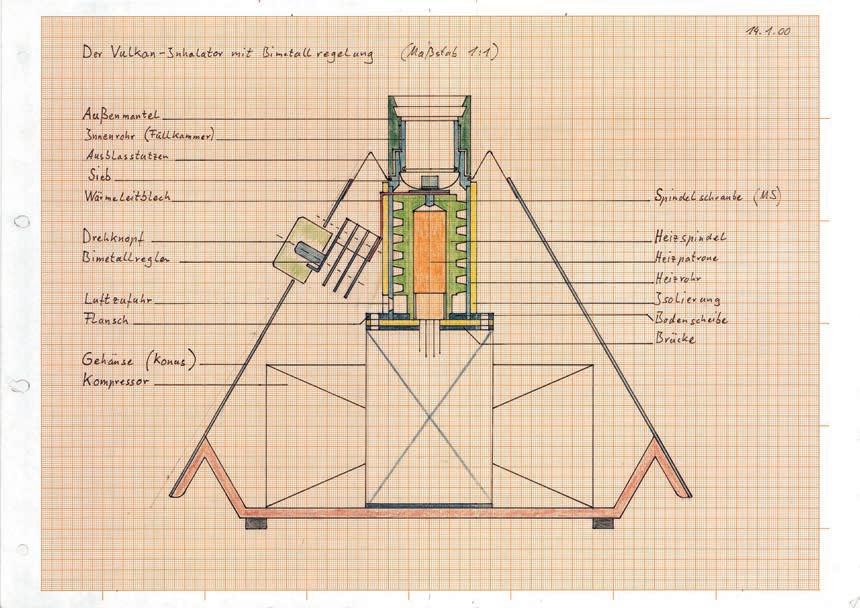 14.1.00
Der Vulkan-Inhalator mit Bimetallregelung (Maßstab 1:1)
Außenmantel
Innenrohr (Füllkammer)
Ausblasstutzen
Sieb
Wärmeleitblech
Drehknopf
Bimetallregler
Luftzufuhr
Flansch
Gehäuse (Konus)
Kompressor
Spindelschraube (M5)
Heizspindel
Heizpatrone
Heizrohr
Isolierung
Bodenscheibe
Brücke